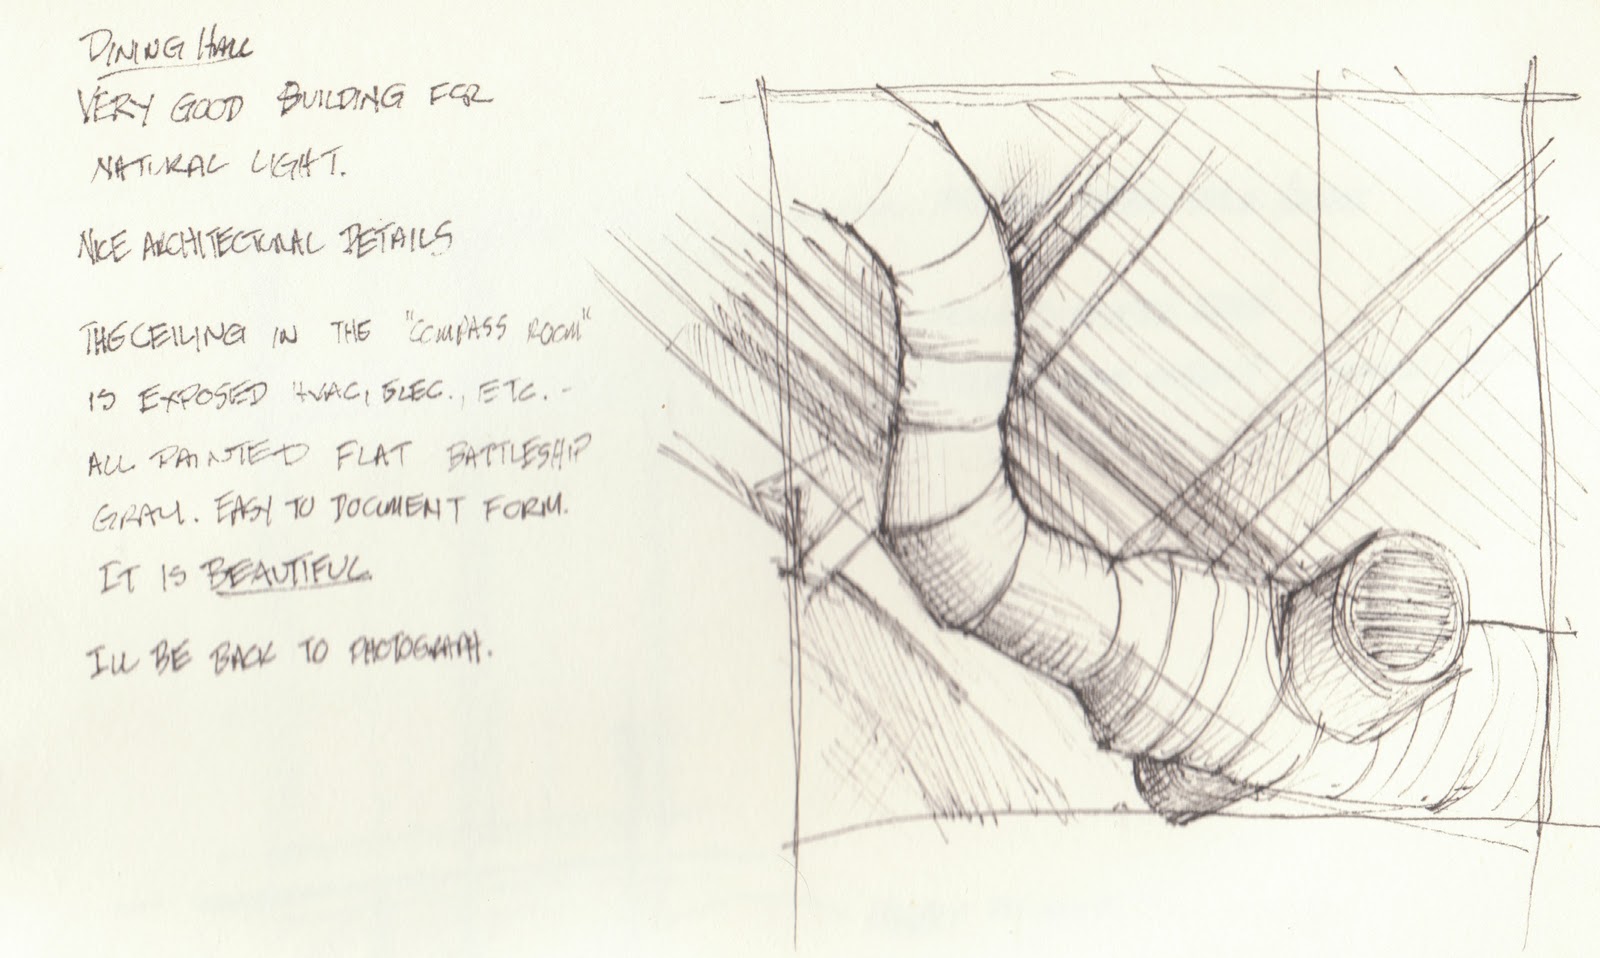 DINING HALL
VERY GOOD BUILDING FOR
NATURAL LIGHT.
NICE ARCHITECTURAL DETAILS
THE CEILING IN THE "COMPASS ROOM"
IS EXPOSED HVAC, ELEC., ETC. -
ALL PAINTED FLAT BATTLESHIP
GRAY. EASY TO DOCUMENT FORM.
IT IS BEAUTIFUL
I'LL BE BACK TO PHOTOGRAPH.